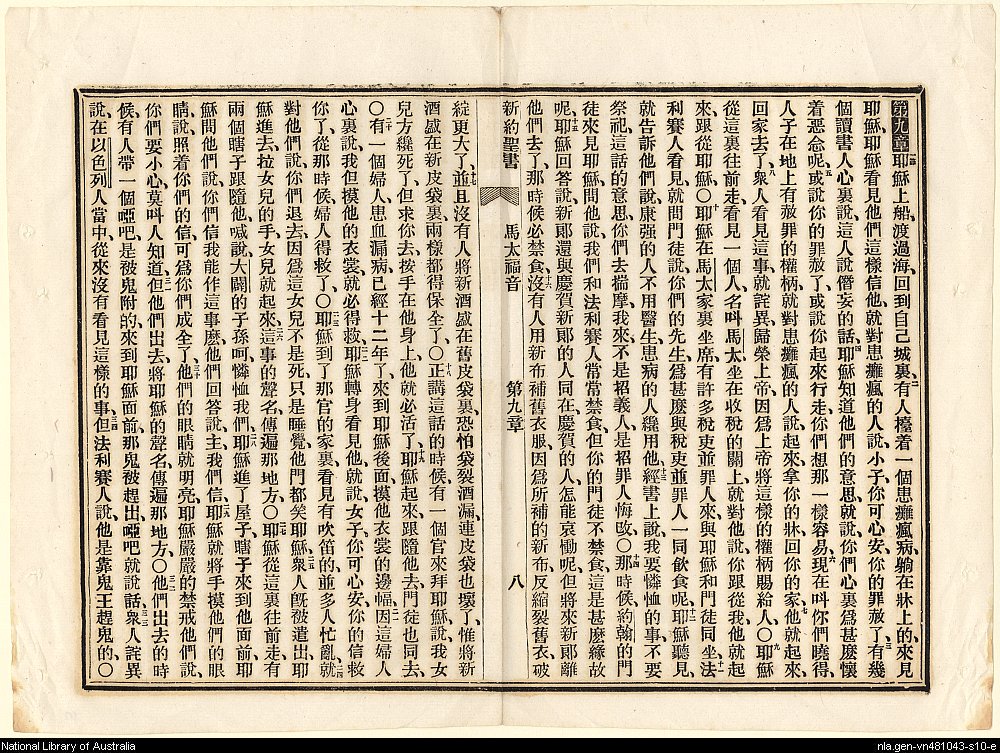 第九章耶穌上船、渡過海、回到自己城裏、二有人擡着一個患癱瘋病、躺在牀上的、來見
耶穌、耶穌看見他們這樣信他、就對患癱瘋的人說、小子你可心安、你的罪赦了、三有幾
個讀書人心裏說、這人說僭妄的話、四耶穌知道他們的意思、就說、你們心裏爲甚麽懷
着惡念呢、五或說你的罪赦了、或說你起來行走、你們想那一樣容易、六現在呌你們曉得、
人子在地上有赦罪的權柄、就對患癱瘋的人說、起來、拿你的牀回你的家、七他就起來、
回家去了、八衆人看見這事就詫異、歸榮上帝、因爲上帝將這樣的權柄賜給人、〇九耶穌
從這裏往前走、看見一個人、名呌馬太、坐在收稅的關上、就對他說、你跟從我、他就起
來、跟從耶穌、〇十耶穌在馬太家裏坐席、有許多稅吏並罪人來、與耶穌和門徒同坐、十一法
利賽人看見、就問門徒說、你們的先生、爲甚麽與稅吏並罪人一同飲食呢、十二耶穌聽見、
就告訴他們說、康强的人不用醫生、患病的人纔用他、十三經書上說、我要憐恤的事、不要
祭祀、這話的意思、你們去揣摩、我來不是招義人、是招罪人悔改、〇十四那時候約翰的門
徒來見耶穌、問他說、我們和法利賽人常常禁食、但你的門徒不禁食、這是甚麽緣故
呢、十五耶穌回答說、新郎還與慶賀新郎的人同在、慶賀的人怎能哀慟呢、但將來新郎離
他們去了、那時候必禁食、十六沒有人用新布補舊衣服、因爲所補的新布、反縮裂舊衣、破
新約聖書 馬太福音 第九章 八
綻更大了、十七並且沒有人將新酒盛在舊皮袋裏、恐怕袋裂酒漏、連皮袋也壞了、惟將新
酒盛在新皮袋裏、兩樣都得保全了、〇十八正講這話的時候、有一個官來拜耶穌、說、我女
兒方纔死了、但求你去、按手在他身上、他就必活了、十九耶穌起來跟隨他去、門徒也同去、
〇二十有一個婦人、患血漏病已經十二年了、來到耶穌後面、摸他衣裳的邊幅、二一因這婦人
心裏說、我但摸他的衣裳、就必得救、二二耶穌轉身看見他、就說、女子你可心安、你的信救
你了、從那時候婦人得救了、〇二三耶穌到了那官的家裏、看見有吹笛的、並多人忙亂、二四就
對他們說、你們退去、因爲這女兒不是死、只是睡覺、他們都笑耶穌、二五衆人旣被遣出、耶
穌進去、拉女兒的手、女兒就起來、二六這事的聲名傳遍那地方、〇二七耶穌從這裏往前走、有
兩個瞎子跟隨他、喊說、大闢的子孫、可憐恤我們、二八耶穌進了屋子、瞎子來到他面前、耶
穌問他們說、你們信我能作這事麽、他們回答說、主、我們信、二九耶穌就將手摸他們的眼
睛、說、照着你們的信、可爲你們成全了、三十他們的眼睛就明亮、耶穌嚴嚴的禁戒他們說、
你們要小心、莫呌人知道、三一但他們出去、將耶穌的聲名傳遍那地方、〇三二他們出去的時
候、有人帶一個啞吧、是被鬼附的、來到耶穌面前、三三那鬼被趕出、啞吧就說話、衆人詫異
說、在以色列人當中、從來沒有看見這樣的事、三四但法利賽人說、他是靠鬼王趕鬼的、〇
National Library of Australia
nla.gen-vn481043-s10-e